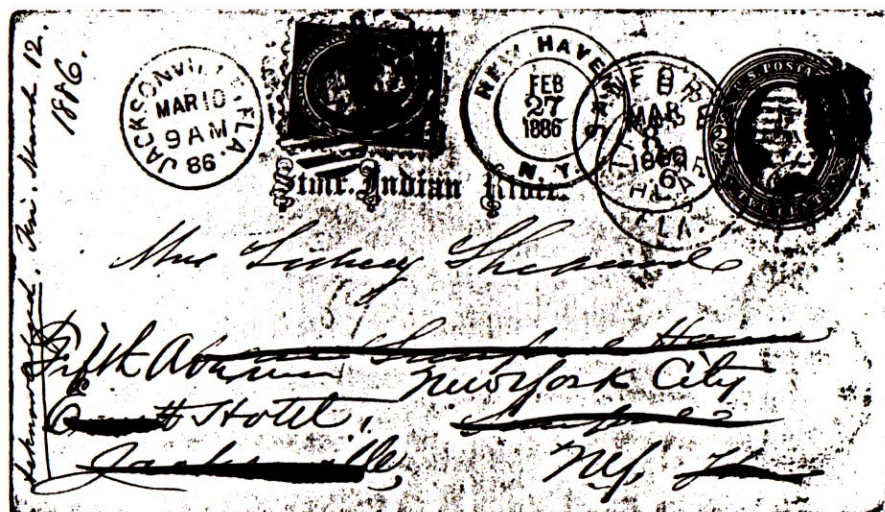 Acknowledged. Fri. March 12.
1886.
JACKSONVILLE FLA.
MAR 10
9 AM
86.
NEW HAVEN
FEB
27
1886
N.Y.
SANFORD
MAR
1886
FLA.
U.S. POSTAGE
Stmr. Indian River.
Mrs Sidney Shepard
Sanford House
Fifth Avenue New York City
Hotel,
Sanford
Jacksonville, NY.